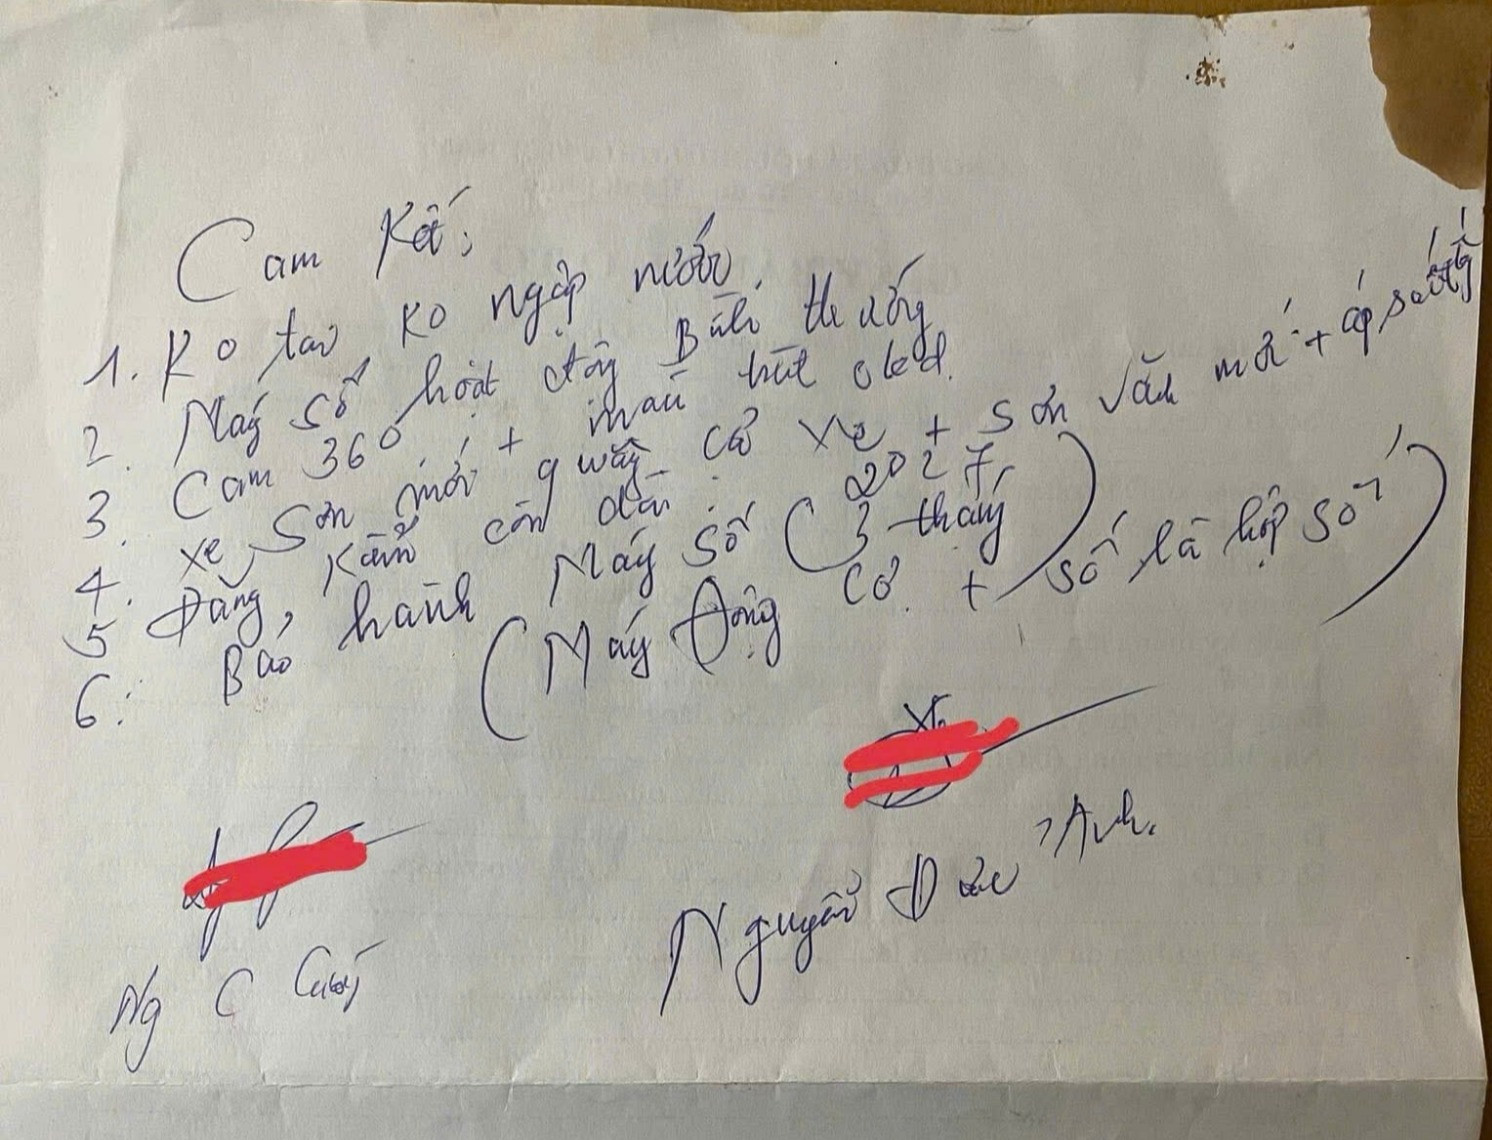 Cam Kết:
1. Ko tai Ko ngập nước
2. Máy số hoạt động Bình thường
3. Cam 360 + màn hình oled.
4. xe sơn mới quanh cả xe + sơn vân mới + ốp
5 Đăng Kiểm còn dài 2027
6: Bảo hành Máy số (3 tháng)
(Máy Động Cơ + số là hộp số)
Nguyễn Đức Anh.
Ng C